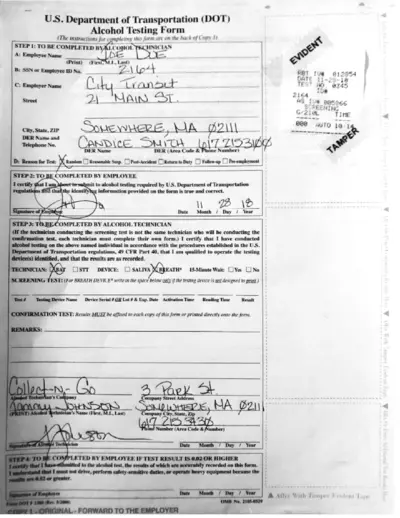 U.S. Department of Transportation (DOT)
Alcohol Testing Form
(The instructions for completing this form are on the back of Copy 3)
STEP 1: TO BE COMPLETED BY ALCOHOL TECHNICIAN
A: Employee Name JOE DOE
(Print) (First, M.I., Last)
B: SSN or Employee ID No. 2164
C: Employer Name City Transit
Street 21 MAIN ST.
City, State, ZIP SOMEWHERE, MA 02111
DER Name and
Telephone No. CANDICE SMITH 617 215 3100
DER Name DER (Area Code & Phone Number)
D: Reason for Test: Random Reasonable Susp. Post-Accident Return to Duty Follow-up Pre-employment
STEP 2: TO BE COMPLETED BY EMPLOYEE
I certify that I am about to submit to alcohol testing required by U.S. Department of Transportation
regulations and that the identifying information provided on the form is true and correct.
11 28 18
Signature of Employee Date Month / Day / Year
STEP 3: TO BE COMPLETED BY ALCOHOL TECHNICIAN
(If the technician conducting the screening test is not the same technician who will be conducting the
confirmation test, each technician must complete their own form.) I certify that I have conducted
alcohol testing on the above named individual in accordance with the procedures established in the U.S.
Department of Transportation regulations, 49 CFR Part 40, that I am qualified to operate the testing
device(s) identified, and that the results are as recorded.
TECHNICIAN: BAT STT DEVICE: SALIVA BREATH* 15-Minute Wait: Yes No
SCREENING TEST: (For BREATH DEVICE* write in the space below only if the testing device is not designed to print.)
Test # Testing Device Name Device Serial # OR Lot # & Exp. Date Activation Time Reading Time Result
CONFIRMATION TEST: Results MUST be affixed to each copy of this form or printed directly onto the form.
REMARKS:
Collect-N-Go 3 Park St
Alcohol Technician's Company Company Street Address
Tammy JOHNSON SOMEWHERE, MA 02111
(PRINT) Alcohol Technician's Name (First, M.I., Last) Company City, State, Zip
617 215 3430
Phone Number (Area Code & Number)
Signature of Alcohol Technician Date Month / Day / Year
STEP 4: TO BE COMPLETED BY EMPLOYEE IF TEST RESULT IS 0.02 OR HIGHER
I certify that I have submitted to the alcohol test, the results of which are accurately recorded on this form.
I understand that I must not drive, perform safety-sensitive duties, or operate heavy equipment because the
results are 0.02 or greater.
Signature of Employee Date Month / Day / Year
COPY 1 - ORIGINAL - FORWARD TO THE EMPLOYER
EVIDENT
TEST NO 0745
2164
SCREENING
G/210L TIME
TAMPER